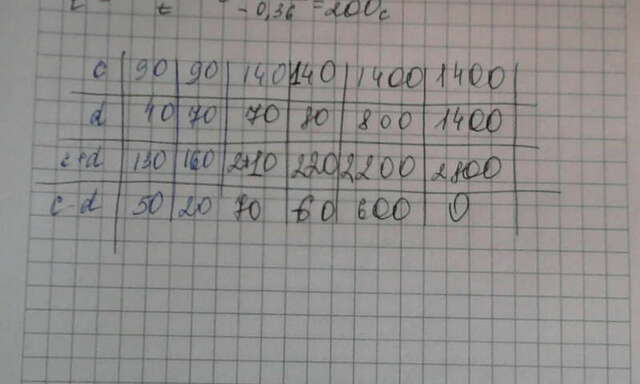 t -0,36 =200c
c 90 90 140 140 1400 1400
d 40 70 70 80 800 1400
c+d 130 160 210 220 2200 2800
c-d 50 20 70 60 600 0